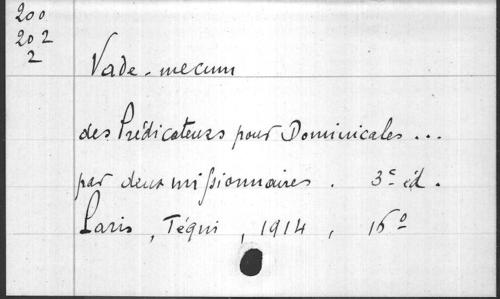 200
202
2
Vade-mecum
des Prédicateurs pour Dominicales ...
par deux missionnaires. 3e éd.
Paris, Téqui, 1914, 16o